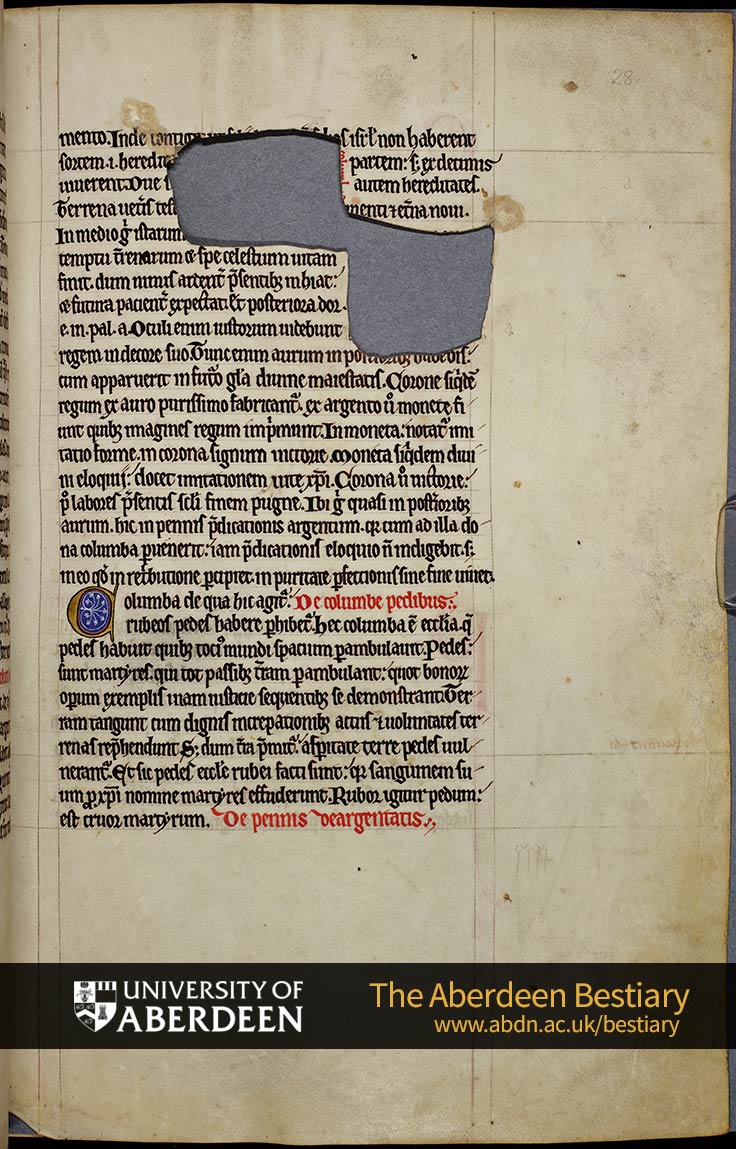 28
mento. Inde contigit
non haberent
sortem .i. heredita
partem: s; ex decimis
uiuerent. Due s
autem hereditates.
Terrena ueteris tes
menti & et̃na noui.
In medio g̊ istarum
temptu t̃renarum & spe celestium uitam
finit. dum nimis ardent̃ p̃sentibꝫ inhiat:
& futura pacient̃ expectat. Et posteriora dor
e. in. pal. a. Oculi enim iustorum uidebunt
regem in decore suo. Tunc enim aurum in
cum apparuerit in fut̃o gl̃a diuine maiestatis. Corone siq̃dẽ
regum ex auro purissimo fabricant̃. ex argento ũ monete fi
unt quibꝫ imagines regum imp̃munt̃. In moneta: notat̃ imi
tatio forme. in corona signum uictorie. Moneta siq̃dem diui
ni eloquij: docet imitationem uite xp̃i. Corona ũ uictorie:
p̃ labores p̃sentis sc̃li finem pugne. Ibi g̊ quasi in post̃ioribꝫ
aurum. hic in pennis p̃dicationis argentum. qꝫ cum ad illa do
na columba ꝑuenerit: iam p̃dicationis eloquio ñ indigebit. s;
in eo qđ in ret̃butione ꝑcipiet. in puritate ꝑfectionis sine fine uiuet.
Columba de qua hic agit̃. De columbe pedibus:.
rubeos pedes habere ꝑhibet̃. Hec columba ẽ ecclia. q̃
pedes habuit quibꝫ toci᷒ mundi spacium ꝑambulauit. Pedes:
sunt martyres. qui tot passibꝫ t̃ram ꝑambulant: quot bonoꝝ
operum exemplis uiam iusticie sequentibꝫ se demonstrant. Ter
ram tangunt cum dignis increpationibꝫ actus & uoluntates ter
renas rep̃hendunt. S; dum t̃ra p̃mit̃. aspitate terre pedes uul
nerant̃. Et sic pedes eccl̃e rubei facti sunt: qꝫ sanguinem su
um ꝓ xp̃i nomine martyres effuderunt. Rubor igitur pedum:
est cruor martyrum. De pennis deargentatis:.
UNIVERSITY OF
ABERDEEN
The Aberdeen Bestiary
www.abdn.ac.uk/bestiary